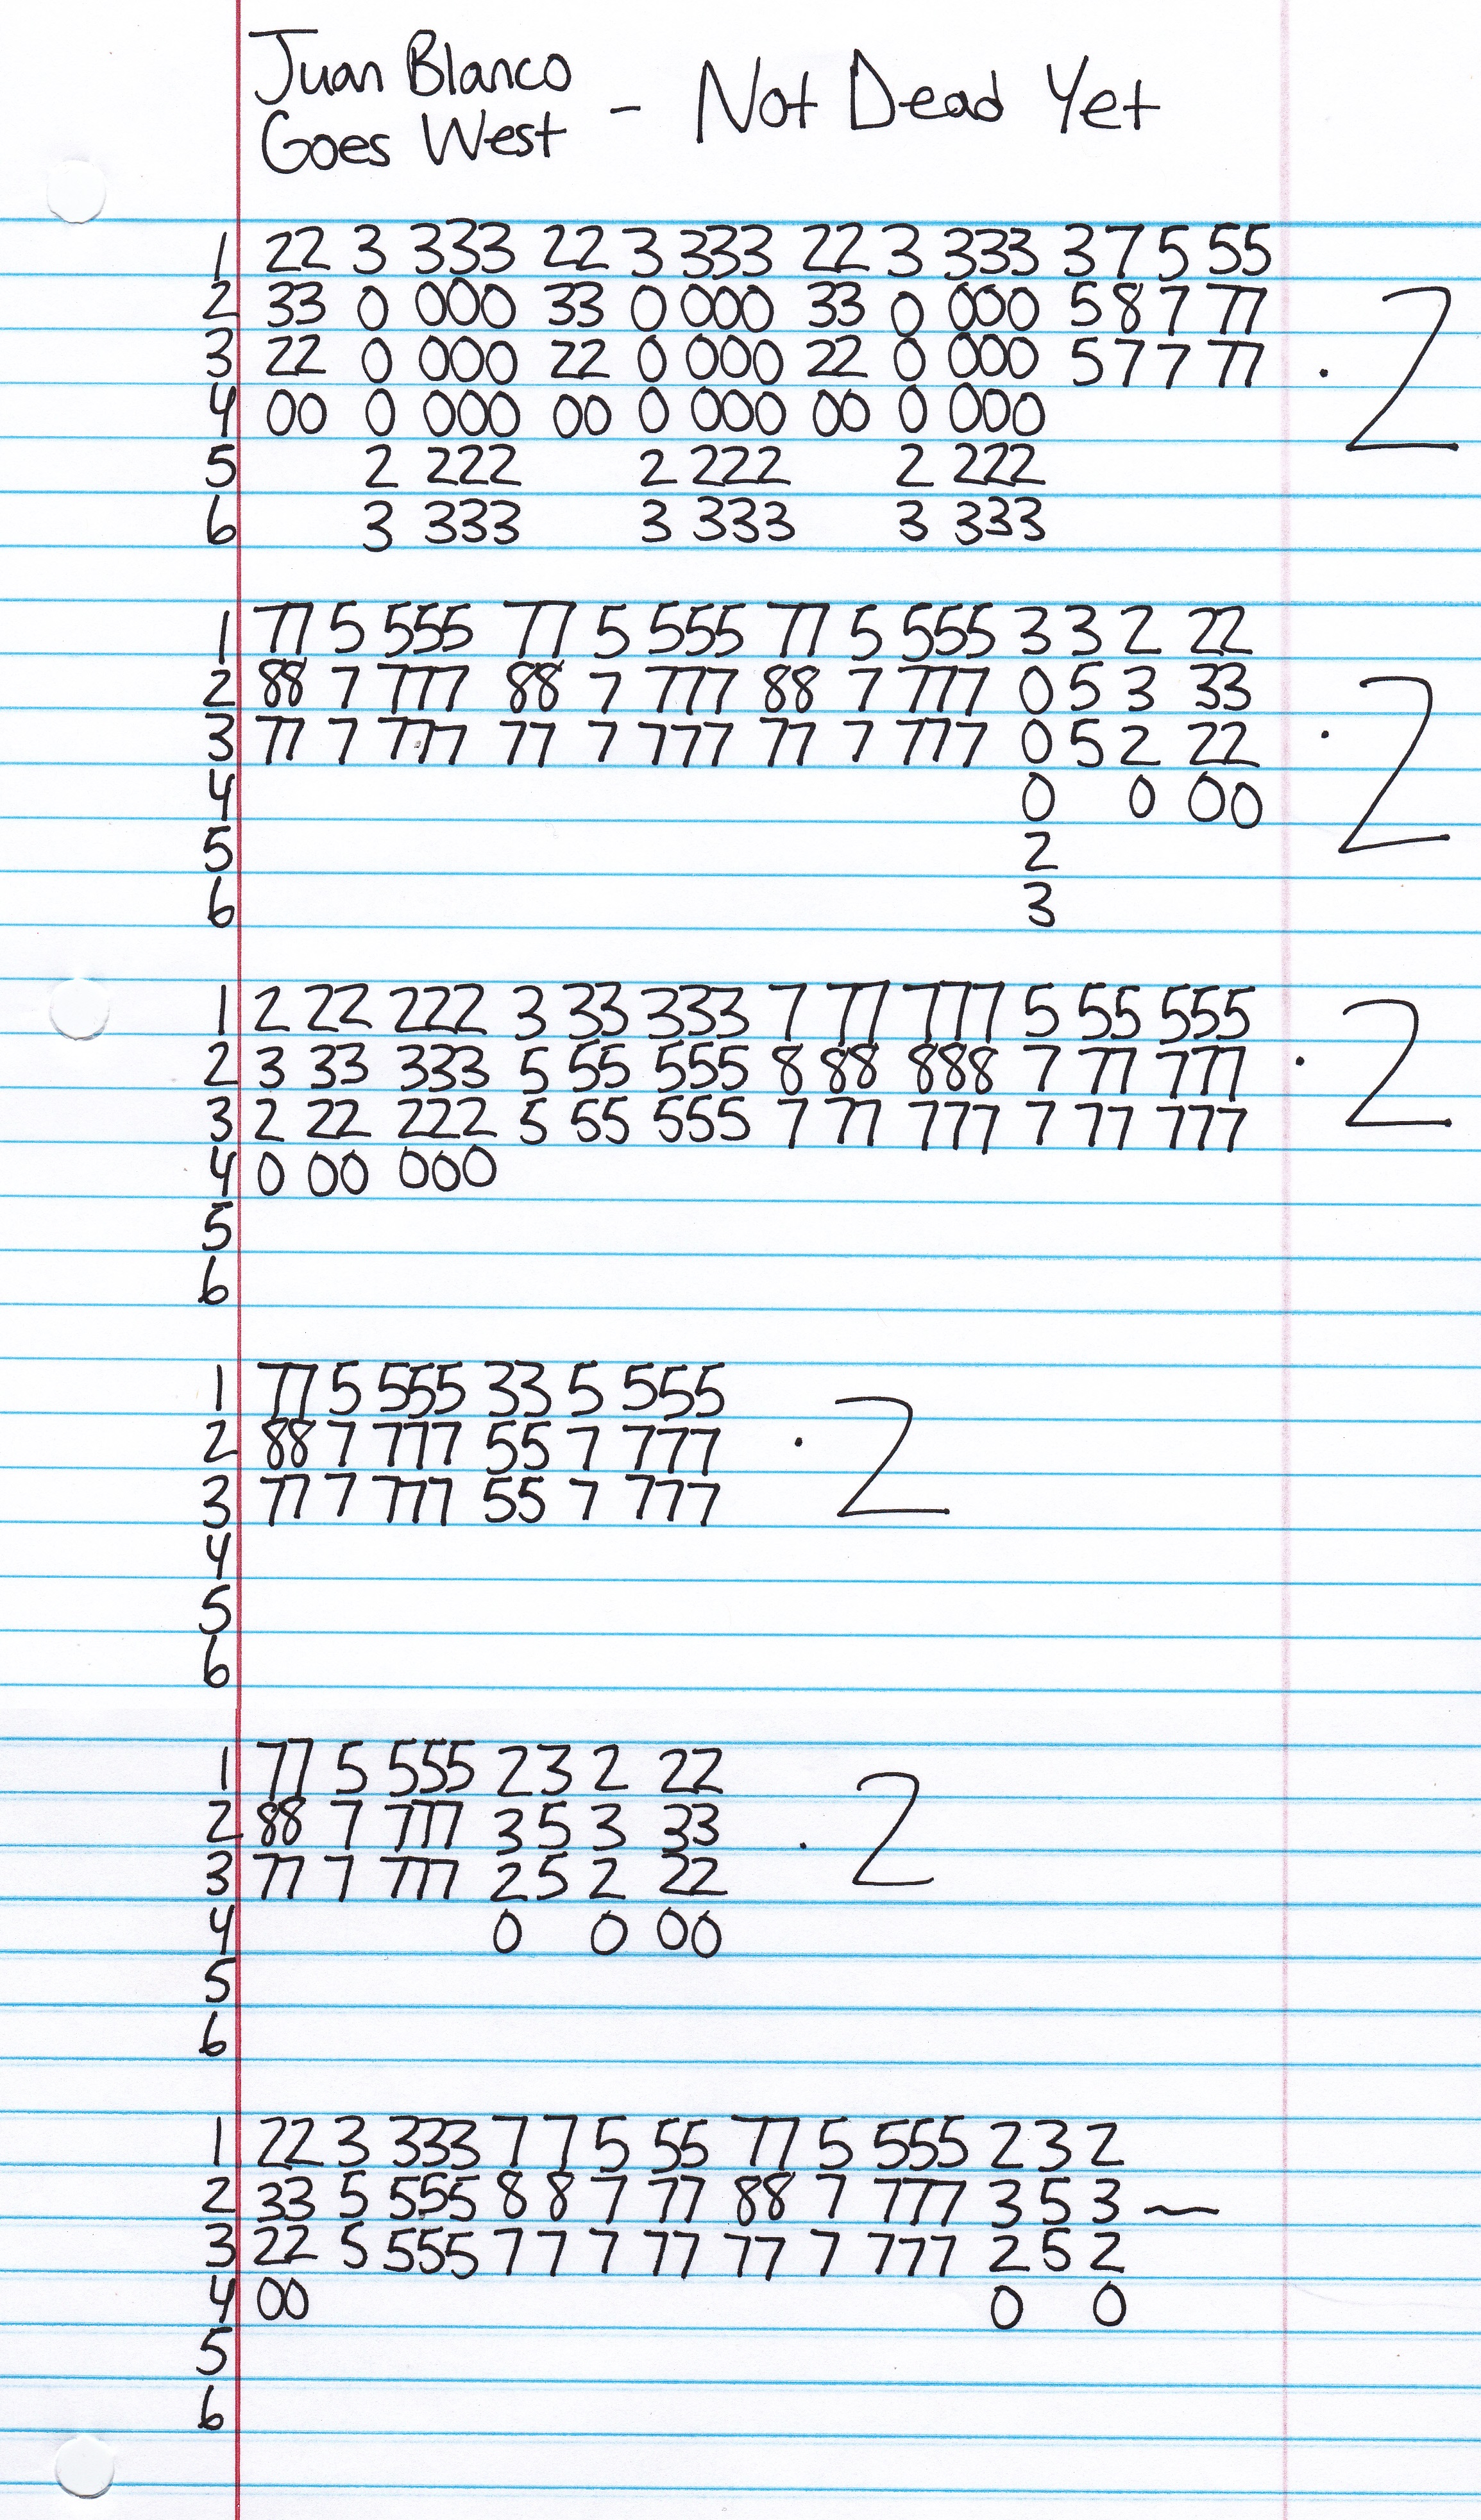 Juan Blanco
Goes West - Not Dead Yet
1 22 3 333 22 3 333 22 3 333 3 7 5 55
2 33 0 000 33 0 000 33 0 000 5 8 7 77
3 22 0 000 22 0 000 22 0 000 5 7 7 77 . 2
4 00 0 000 00 0 000 00 0 000
5 2 222 2 222 2 222
6 3 333 3 333 3 333
1 77 5 555 77 5 555 77 5 555 3 3 2 22
2 88 7 777 88 7 777 88 7 777 0 5 3 33
3 77 7 777 77 7 777 77 7 777 0 5 2 22 . 2
4 0 0 00
5 2
6 3
1 2 22 222 3 33 333 7 77 777 5 55 555
2 3 33 333 5 55 555 8 88 888 7 77 777 . 2
3 2 22 222 5 55 555 7 77 777 7 77 777
4 0 00 000
5
6
1 77 5 555 33 5 555
2 88 7 777 55 7 777 . 2
3 77 7 777 55 7 777
4
5
6
1 77 5 555 2 3 2 22
2 88 7 777 3 5 3 33 . 2
3 77 7 777 2 5 2 22
4 0 0 00
5
6
1 22 3 333 7 7 5 55 77 5 555 2 3 2
2 33 5 555 8 8 7 77 88 7 777 3 5 3 ~
3 22 5 555 7 7 7 77 77 7 777 2 5 2
4 00 0 0
5
6